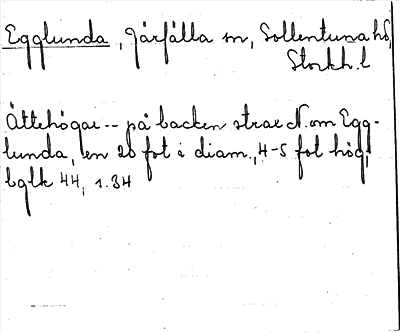 Egglunda, Järfälla sn, Sollentuna hd,
Stockh. l
Ättehögar -- på backen strax N. om Egg-
lunda, en 20 fot i diam., 4-5 fot hög,
bglk 44, s. 34